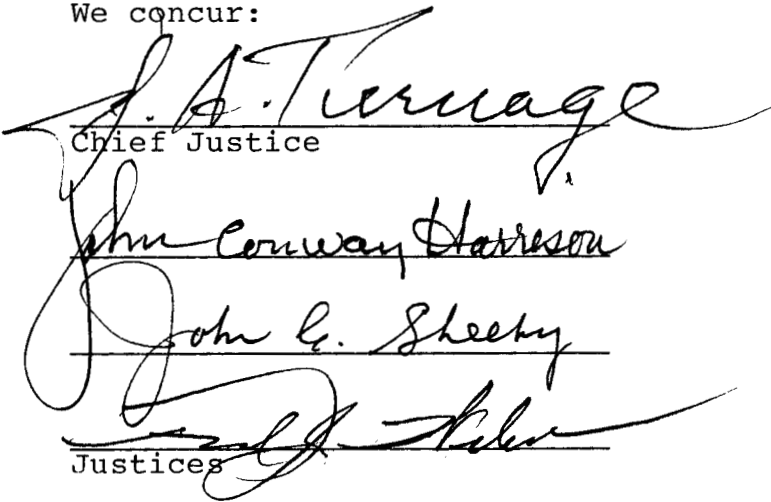 We concur:
J. A. Turnage
Chief Justice
John Conway Harrison
John C. Sheehy
Justices